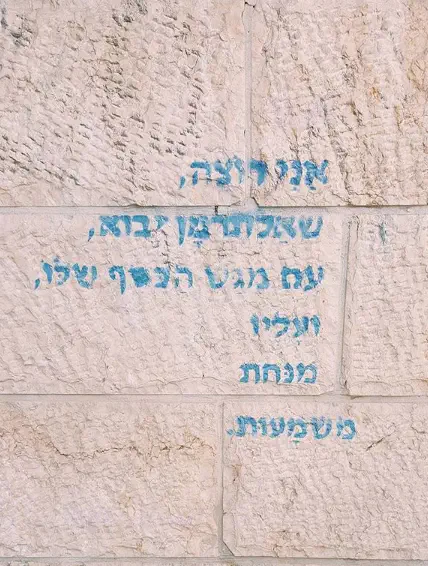 אני רוצה,
שאלתרמן יבוא,
עם מגש הכסף שלו,
ועליו
מנחת
משמעות.